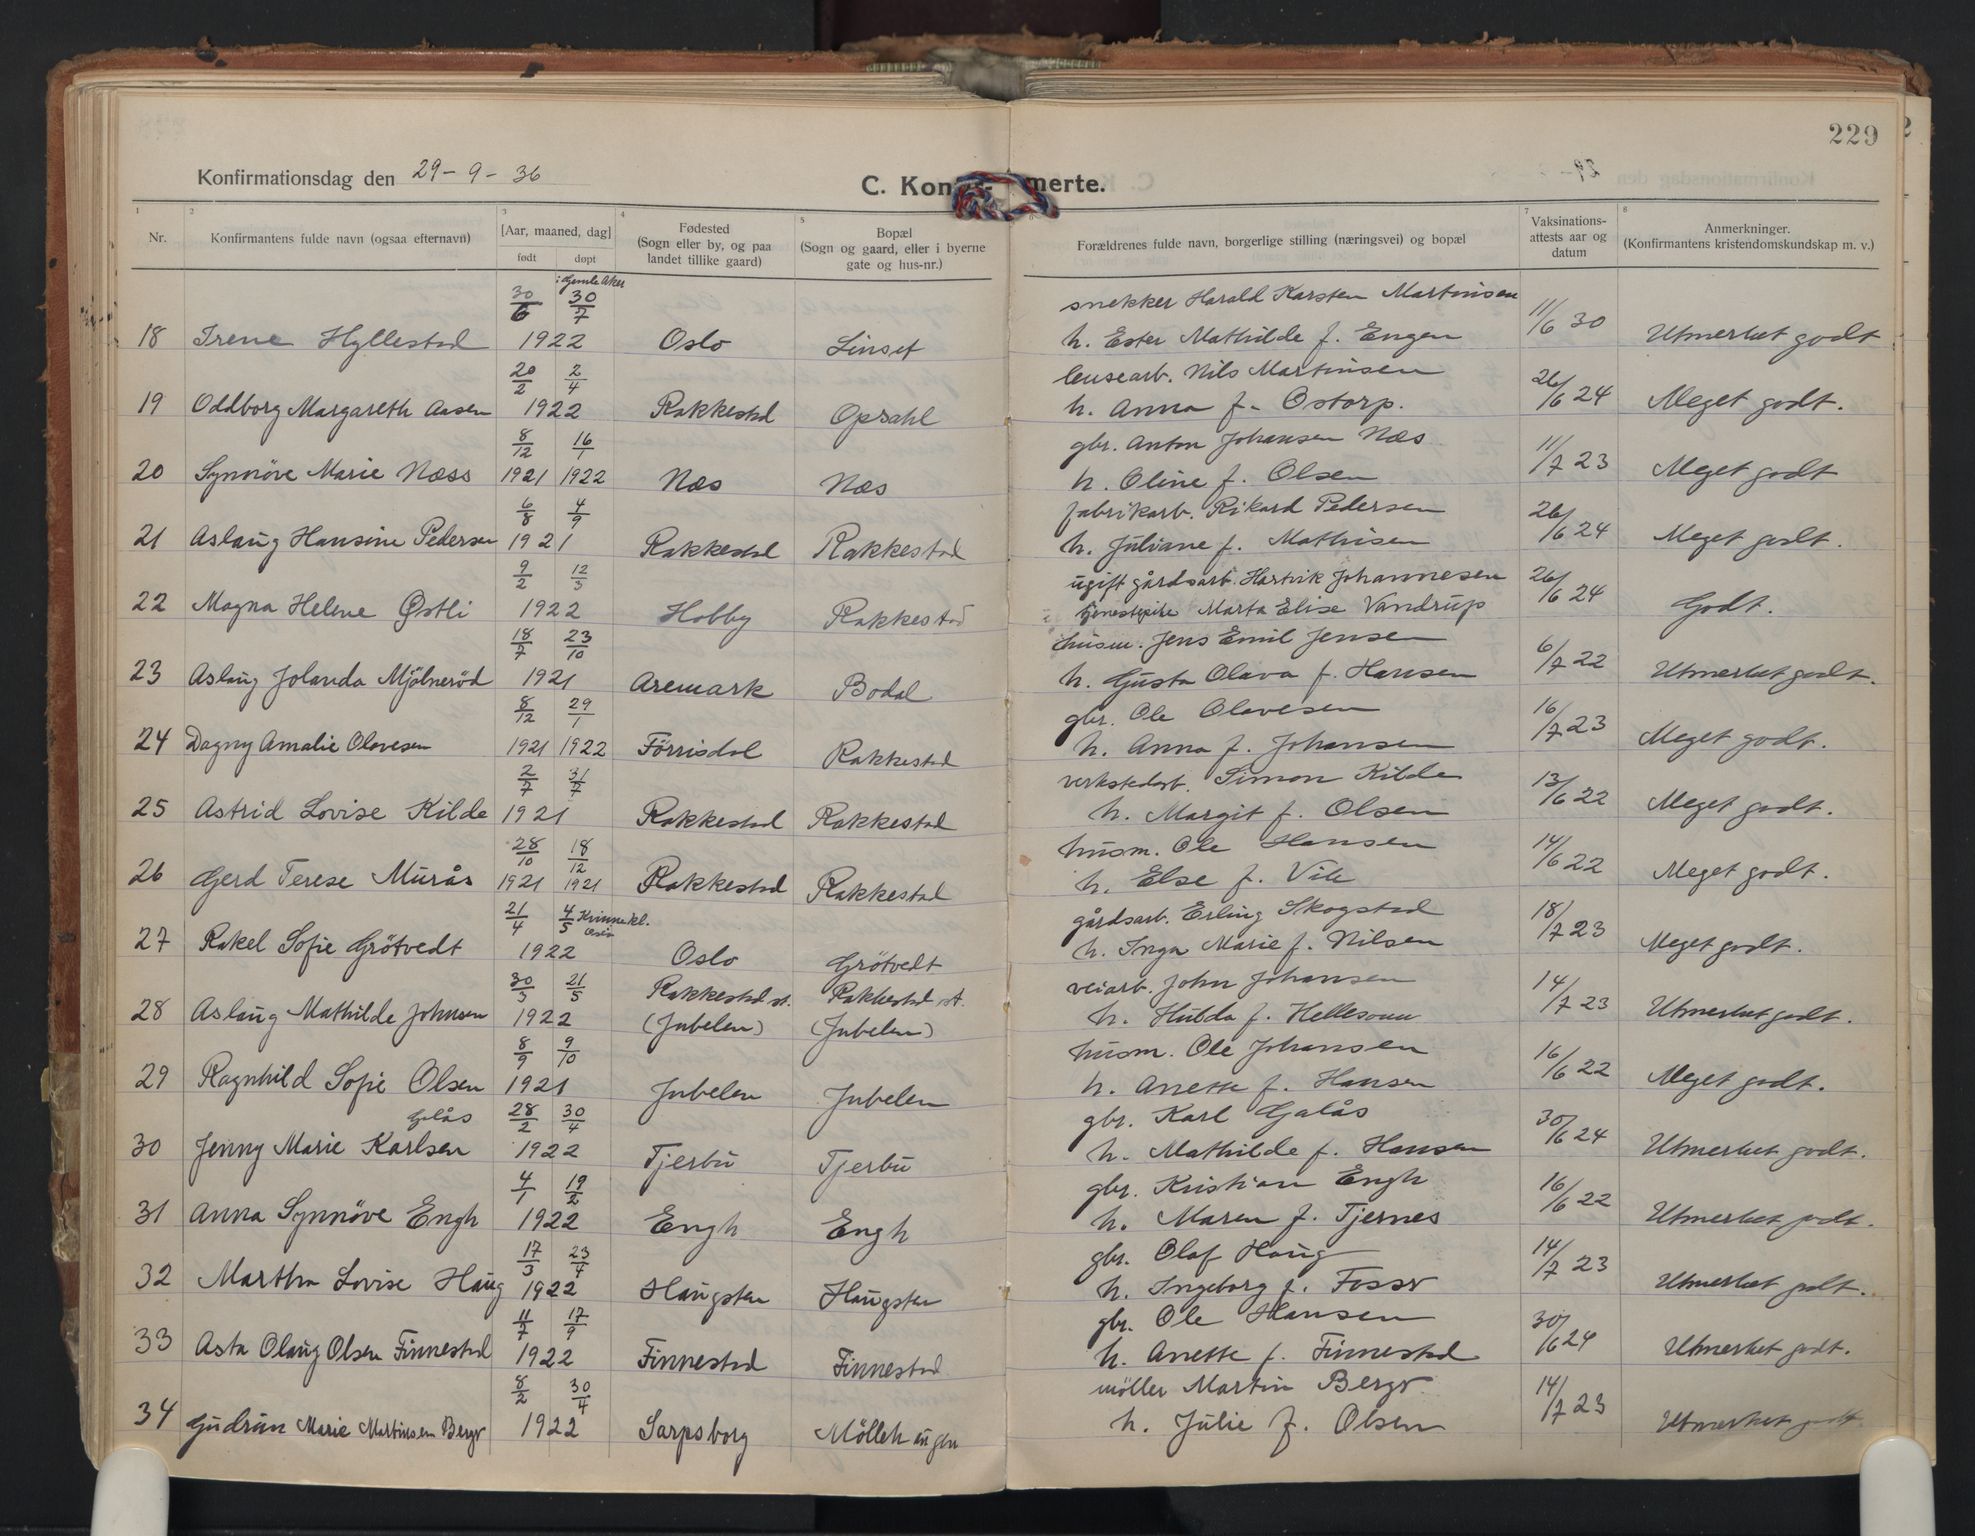 229
Konfirmationsdag den 29-9-36
C. Konf merte.
1 2 3 4 5 6 7 8
Nr. Konfirmantens fulde navn (ogsaa efternavn) [Aar, maaned, dag] født døpt Fødested (Sogn eller by, og paa landet tillike gaard) Bopæl (Sogn og gaard, eller i byerne gate og hus-nr.) Forældrenes fulde navn, borgerlige stilling (næringsvei) og bopæl Vaksinations-attests aar og datum Anmerkninger. (Konfirmantens kristendomskundskap m. v.)
i Gamle Aker
30/6 30/7 snekker Harald Karsten Martinsen
18 Irene Hyllestad 1922 Oslo Linset h. Ester Mathilde f. Engen 11/6 30 Utmerket godt
20/2 2/4 lensearb. Nils Martinsen
19 Oddborg Margareth Aasen 1922 Rakkestad Opsahl h. Anna f. Ostorp. 26/6 24 Meget godt.
8/12 16/1 gbr. Anton Johansen Næs
20 Synnöve Marie Næss 1921 1922 Næs Næs h. Oline f. Olsen 11/7 23 Meget godt
6/8 4/9 fabrikarb. Rikard Pedersen
21 Aslaug Hansine Pedersen 1921 Rakkestad Rakkestad h. Juliane f. Mathisen 26/6 24 Meget godt.
9/2 12/3 ugift gårdsarb. Hartvik Johannesen
22 Magna Helene Østli 1922 Hobby Rakkestad tjenestepike Marta Elise Vandrup 26/6 24 Godt.
18/7 23/10 husm. Jens Emil Jensen
23 Aslaug Jolanda Mjölneröd 1921 Aremark Bodal h. Gusta Olava f. Hansen 6/7 22 Utmerket godt.
8/12 29/1 gbr. Ole Olavesen
24 Dagny Amalie Olavesen 1921 1922 Förrisdal Rakkestad h. Anna f. Johansen 16/7 23 Meget godt.
2/7 31/7 verkstedarb. Simon Kilde
25 Astrid Lovise Kilde 1921 Rakkestad Rakkestad h. Margit f. Olsen 13/6 22 Meget godt.
28/10 18/12 husm. Ole Hansen
26 Gerd Terese Murås 1921 1921 Rakkestad Rakkestad h. Else f. Vik 14/6 22 Meget godt.
21/4 4/5 Kvinnekl. Oslo gårdsarb. Erling Skogstad
27 Rakel Sofie Grötvedt 1922 Oslo Grötvedt h. Inga Marie f. Nilsen 18/7 23 Meget godt.
30/3 21/5 Rakkestad st. Rakkestad st. veiarb. John Johansen
28 Aslaug Mathilde Johnsen 1922 (Jubelen) (Jubelen) h. Hulda f. Hellesom 14/7 23 Utmerket godt.
8/9 9/10 husm. Ole Johansen
29 Ragnhild Sofie Olsen 1921 Jubelen Jubelen h. Anette f. Hansen 16/6 22 Meget godt.
Galås 28/2 30/4 gbr. Karl Galås
30 Jenny Marie Karlsen 1922 Tjerbu Tjerbu h. Mathilde f. Hansen 30/6 24 Utmerket godt.
4/1 19/2 gbr. Kristian Engh
31 Anna Synnöve Engh 1922 Engh Engh h. Maren f. Tjernes 16/6 22 Utmerket godt.
17/3 23/4 gbr. Olaf Haug
32 Martha Lovise Haug 1922 Haugsten Haugsten h. Ingeborg f. Fosser 14/7 23 Utmerket godt.
11/7 17/9 gbr. Ole Hansen
33 Asta Olaug Olsen Finnestad 1922 Finnestad Finnestad h. Anette f. Finnestad 30/6 24 Utmerket godt.
8/2 30/4 möller Martin Berger
34 Gudrun Marie Martinsen Berger 1922 Sarpsborg Möllehaugen h. Julie f. Olsen 14/7 23 Utmerket godt.